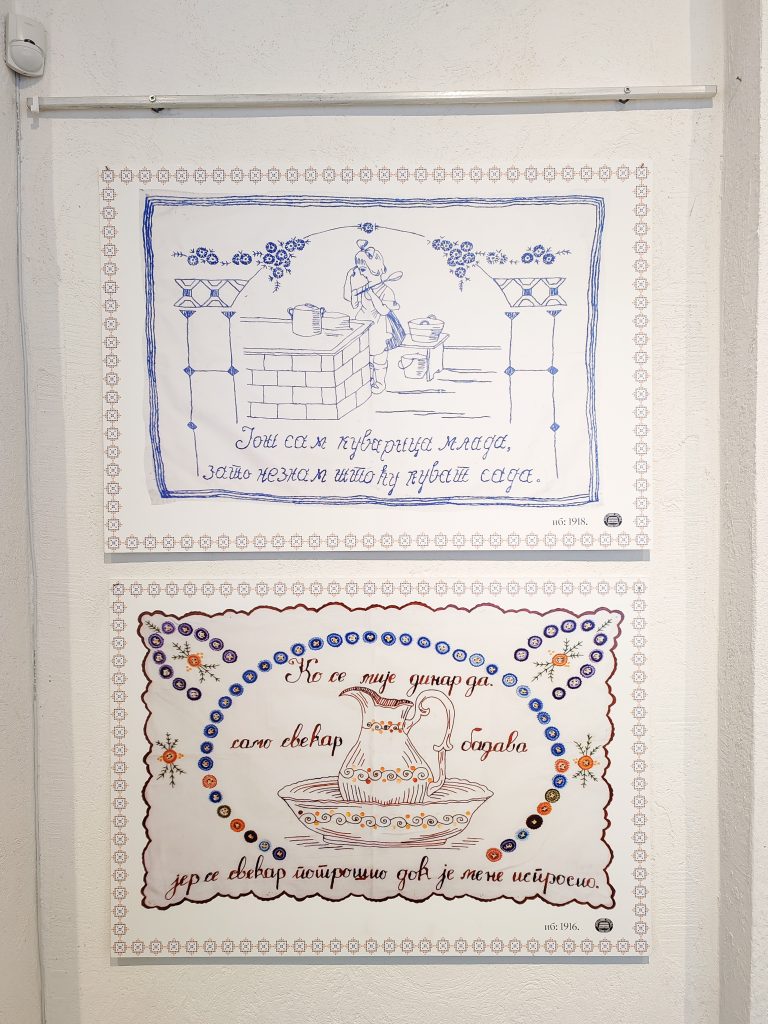 Још сам куварица млада,
зато незнам што ћу куват сада.
иб: 1918.
Ко се мије динар да.
само свекар бадава
јер се свекар потрошио док је мене испросио.
иб: 1916.